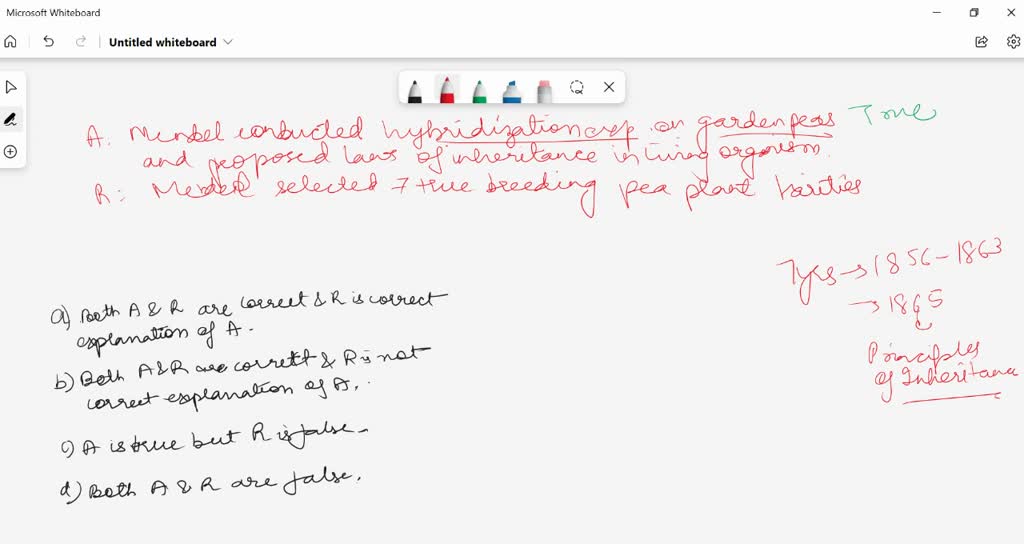 Microsoft Whiteboard
Untitled whiteboard
A. Mendel conducted hybridization exp. on garden peas True
and proposed laws of inheritance in living organism.
R: Mendel selected 7 true breeding pea plant varities
7 yrs → 1856 - 1863
→ 1865
Principles
of Inheritance
a) Both A & R are correct & R is correct
explanation of A.
b) Both A & R are correct & R is not
correct explanation of A.
c) A is true but R is false.
d) Both A & R are false.